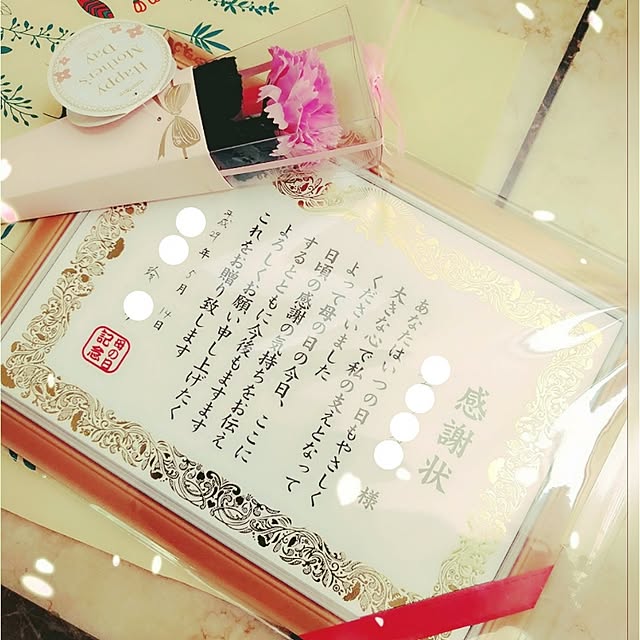 Happy
Mother's
Day
感謝状
様
あなたはいつの日もやさしく
大きな心で私の支えとなって
くださいました
よって母の日の今日、ここに
日頃の感謝の気持ちをお伝え
するとともに今後もますます
よろしくお願い申し上げたく
これをお贈り致します
平成29年5月14日
母の日
記念